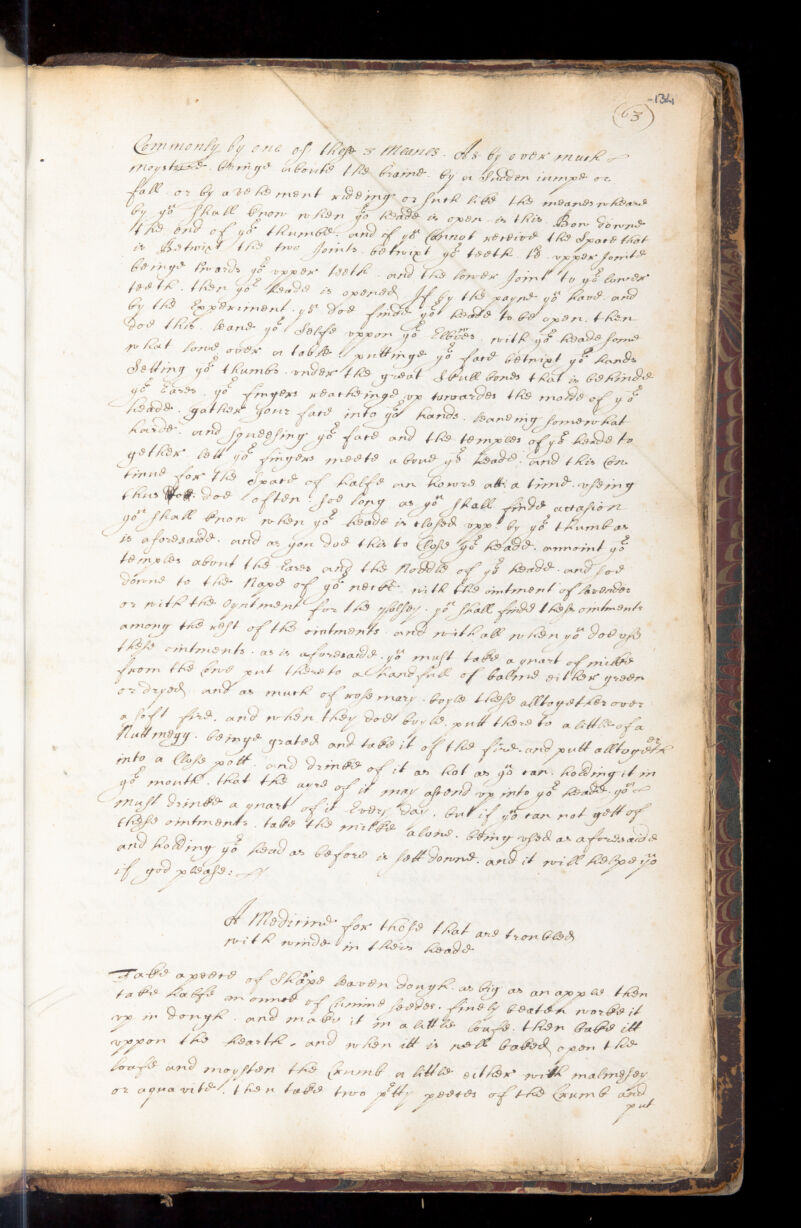 -134
63
Commonly by one of these 3 Meanes. As by over much
moysture beinge aboute the braine by a Sudden iumpe or
fall. or by a vehement rideing or such like the meanes wheare
by yo^u shall know when yo^r heade is open. is this. Bow downe
the end of yo^r thumbe. and if yo^u Cannot receive the Space that
is Betwixt the two Joints. betwixt yo^r teeth. the upper Jointe
beinge towards yo^r upper teeth. and the lower Joint to yo^r lower
teeth. then yo^r heade is opened. If by the payne yo^u have. and
by the Experiment. yo^u doe finde yo^r heade to be open. then
doe this. leane yo^r selfe uppon yo^r Ellbowes. with yo^r heade some
what lowe over a table puttinge yo^r face betwixt yo^r hands
Setting yo^r thumbs. under the great Skull bones that is behinde
yo^r Eares. yo^r fingers reacheinge up towardes the molde of yo^r
heade. gather your face into yo^r hands. leaneing somewhat
harde. and squeesing yo^r face and the temples of yo^r heade to
gether. lett yo^r fingers meete above yo^r heade. and this Con-
tinue for the Space of halfe an howre att a time. useing
thus doe often. soe long as yo^u shall finde occasion
yo^u shall know when yo^r heade is closed upp by yo^r thumb as
is aforesaide. and as you doe this to Close yo^r heade. annoint yo^r
temples about the Eares and the Noddle of yo^r heade. and soe
downe to the Nape of yo^r necke. with the ointment of lavender
or with the Oyntment for the palsey. yo^u shall finde these ointments
among the rest of the ointments. and with all when yo^u doe use
these ointments. as is aforesaide. yo^u must take a quart of milke
from the Cowe put thereto a handfull of balme either green
or dryed and as much of rosemary. boyle these alltogether over
a soft fire. and when they doe boyle. putt there to a little of a
Nuttmegg. beinge grated and take it of the fire. and putt alltogether
into a Close pott. and drinke of it as hot as yo^u can. holding it in
yo^r mouth. that the ayre of it may assend up into yo^r heade. yo^u
must drinke a quart of it Every day. but if yo^u can not gett of
these ointments. take the milke alone. being used as aforesaide
and holding yo^r head as before is sett downe. and it will helpe yo^u
if god please:
A Medicine for those that are troubled
with winde in theire heade
Take a peece of Sharpe leaven dough. as big as an apple then
take halfe an ounce of Cumine seedes. finely beaten worke it
up in dough. and make it in a little loafe. then bake itt
uppon the hearth. and when itt is well baked open the
loafe and moysten the Crumb a little either with malmesey
or aquavite. then take two pretty peeces of the Crumb and
put